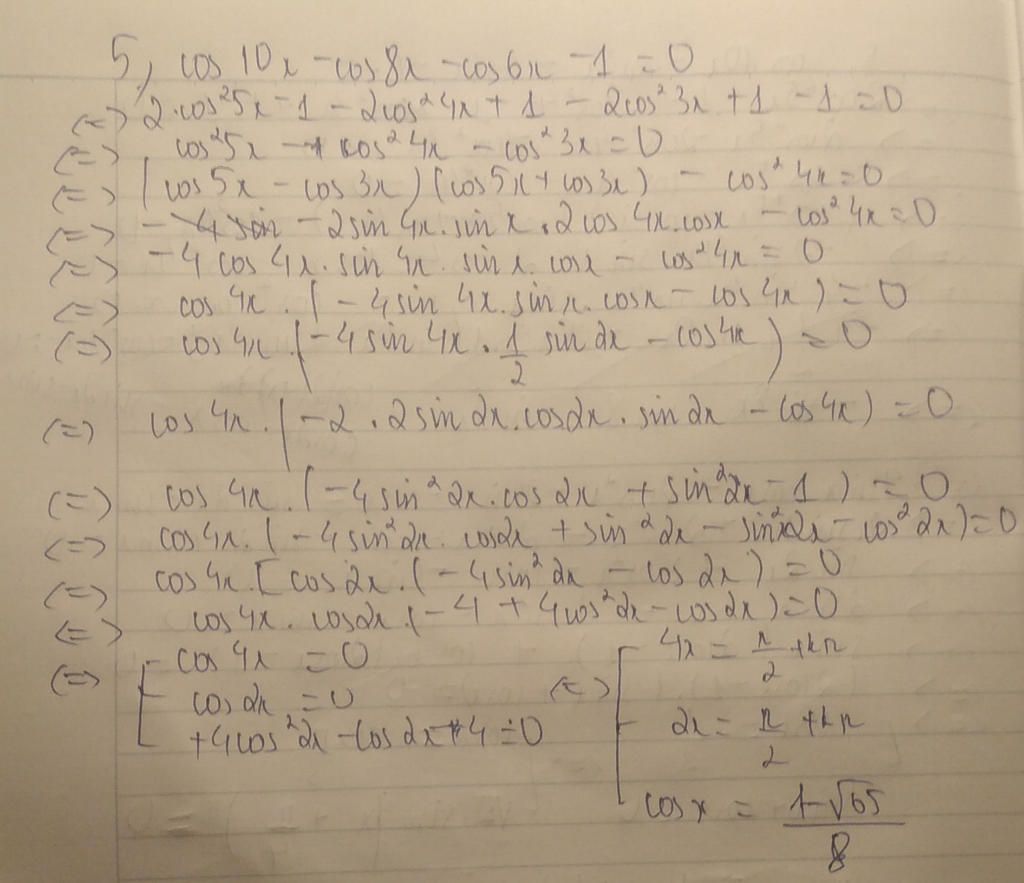 5, cos 10x - cos 8x - cos 6x - 1 = 0
(=) 2.cos²5x - 1 - 2cos²4x + 1 - 2cos²3x + 1 - 1 = 0
(=) cos²5x - cos²4x - cos²3x = 0
(=) (cos 5x - cos 3x)(cos 5x + cos 3x) - cos²4x = 0
(=) - 2 sin 4x. sin x . 2 cos 4x. cos x - cos²4x = 0
(=) -4 cos 4x. sin 4x. sin x. cos x - cos²4x = 0
(=) cos 4x. (-4 sin 4x. sin x. cos x - cos 4x) = 0
(=) cos 4x. (-4 sin 4x . 1/2 sin 2x - cos 4x) = 0
(=) cos 4x. (-2 . 2 sin 2x. cos 2x . sin 2x - cos 4x) = 0
(=) cos 4x. (-4 sin²2x. cos 2x + sin²2x - 1) = 0
(=) cos 4x. (-4 sin²2x. cos 2x + sin²2x - sin²2x - cos²2x) = 0
(=) cos 4x. [cos 2x. (-4 sin²2x - cos 2x) = 0
(=) cos 4x. cos 2x (-4 + 4cos²2x - cos 2x) = 0
(=) [ cos 4x = 0 (=) [ 4x = π/2 + kπ
cos 2x = 0 2x = π/2 + kπ
+4cos²2x - cos 2x - 4 = 0 cos x = (1 - √65)/8